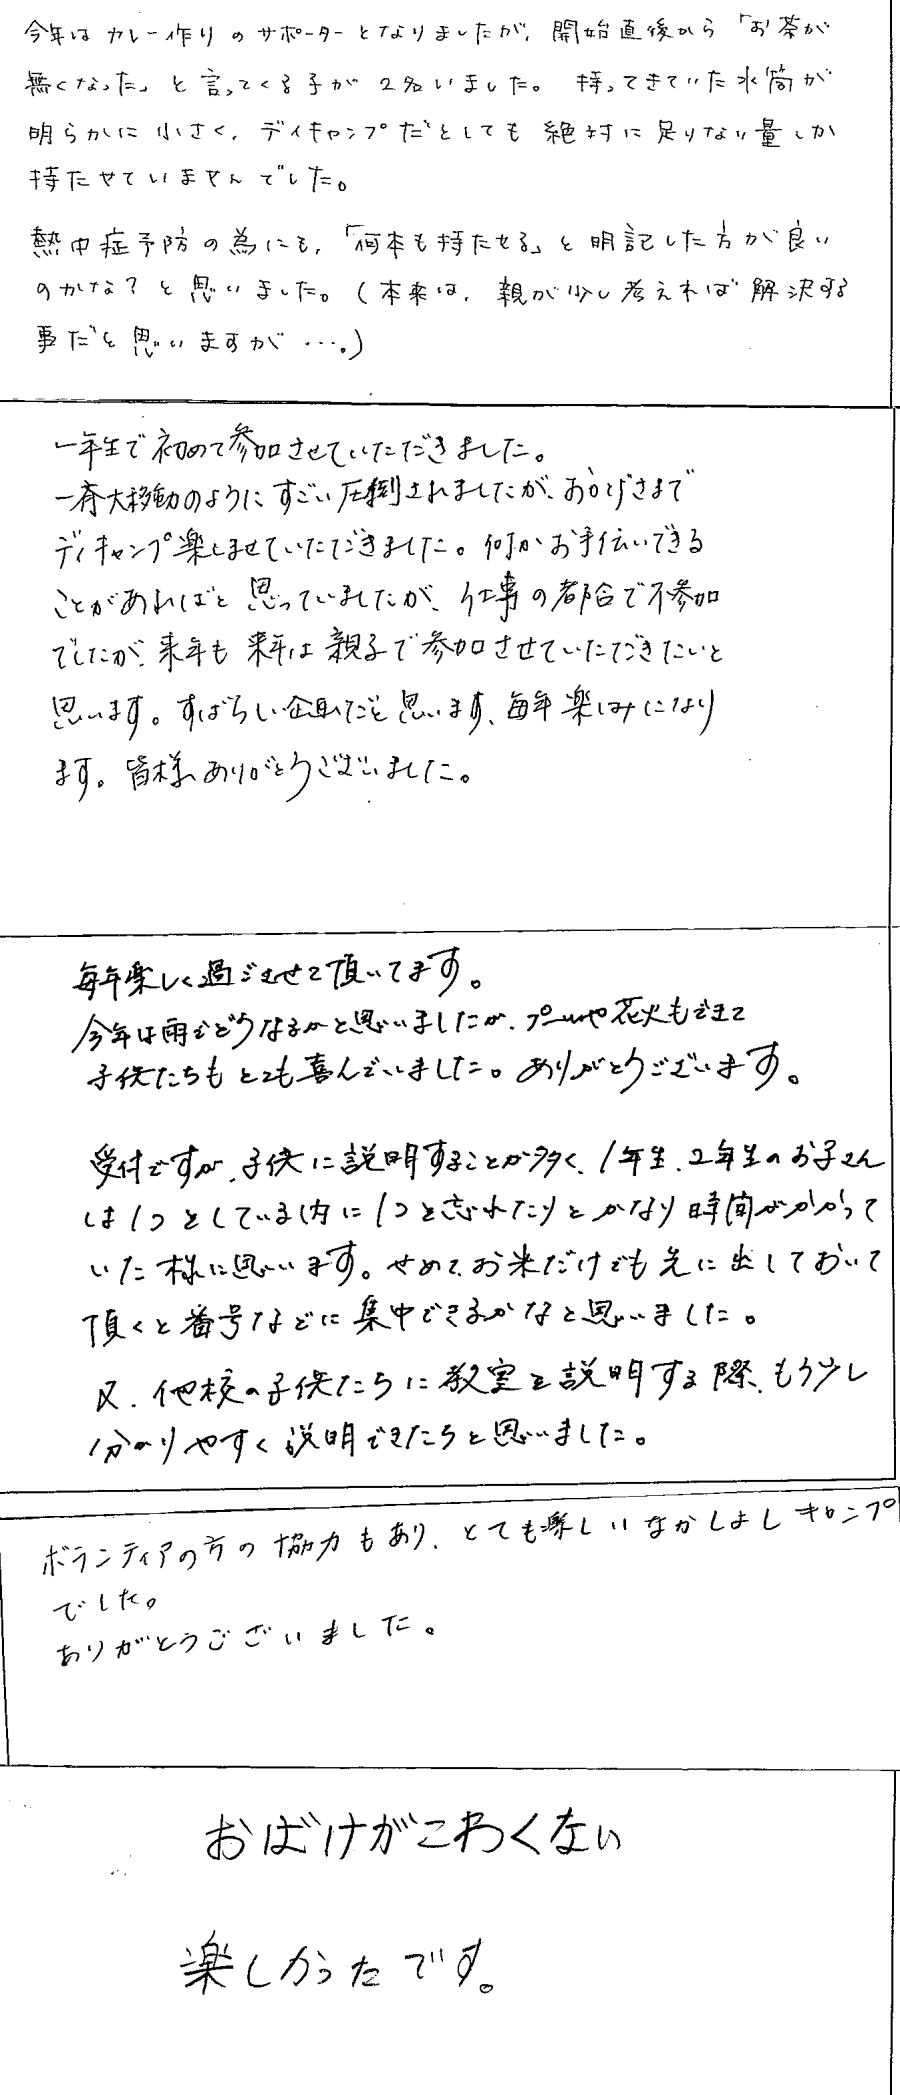 今年はカレー作りのサポーターとなりましたが、開始直後から「お茶が
無くなった」と言ってくる子が2名いました。持ってきていた水筒が
明らかに小さく、デイキャンプだとしても絶対に足りない量しか
持たせていませんでした。
熱中症予防の為にも、「何本も持たせる」と明記した方が良い
のかな？と思いました。(本来は、親が少し考えれば解決する
事だと思いますが…。)
一年生で初めて参加させていただきました。
一斉大移動のようにすごい圧倒されましたが、おかげさまで
デイキャンプ楽しませていただきました。何かお手伝いできる
ことがあればと思っていましたが、仕事の都合で不参加
でしたが、来年も来年は親子で参加させていただきたいと
思います。すばらしい企画だと思います、毎年楽しみになり
ます。皆様ありがとうございました。
毎年楽しく過ごさせて頂いてます。
今年は雨でどうなるかと思いましたが、プールや花火もできて
子供たちもとても喜んでいました。ありがとうございます。
受付ですが、子供に説明することが多く、1年生、2年生のお子さん
は1つとしている内に1つと忘れたりとかなり時間がかかって
いた様に思います。せめて、お米だけでも先に出しておいて
頂くと番号などに集中できるかなと思いました。
又、他校の子供たちに教室を説明する際、もう少し
分かりやすく説明できたらと思いました。
ボランティアの方の協力もあり、とても楽しいなかよしキャンプ
でした。
ありがとうございました。
おばけがこわくない
楽しかったです。